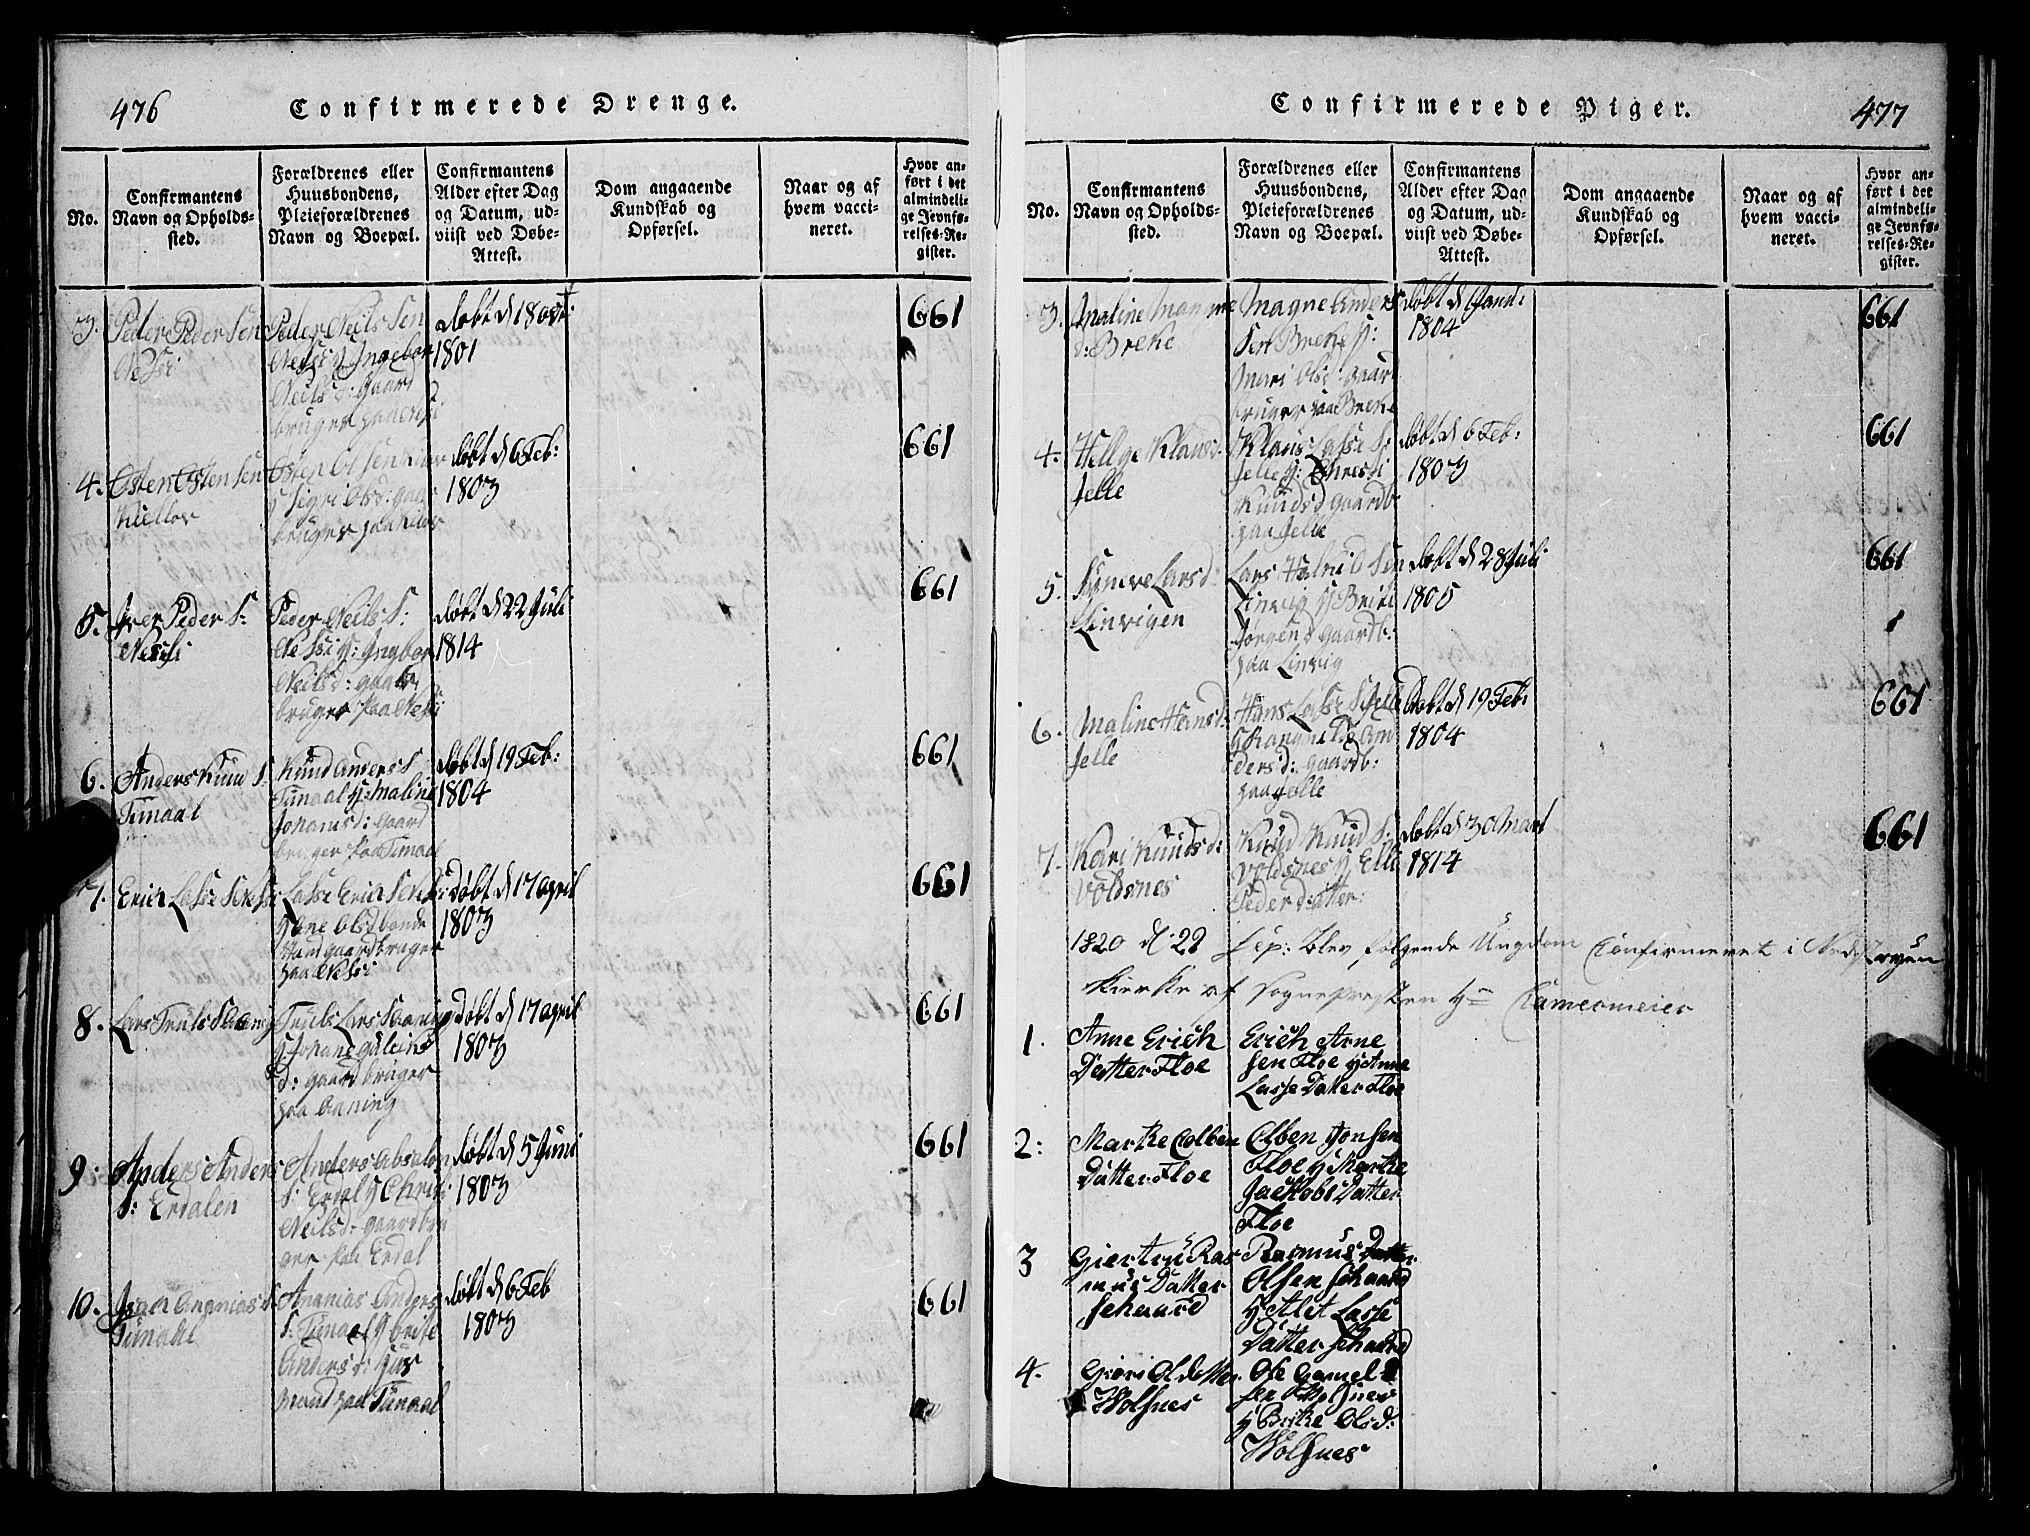 476
Confirmerede Drenge.
No.
Confirmantens
Navn og Opholds-
sted.
Forældrenes eller
Huusbondens,
Pleieforældrenes
Navn og Boepæl.
Confirmantens
Alder efter Dag
og Datum, ud-
viist ved Døbe-
Attest.
Dom angaaende
Kundskab og
Opførsel.
Naar og af
hvem vacci-
neret.
Hvor an-
ført i det
almindeli-
ge Jevnfø-
relses-Re-
gister.
3.
Peder Peder Sen
Nessi
Peder Neils Sen
Nessi & Ingebor
Neils d: gaard
bruger paa Nessi
døbt d 18
1801
661
4.
Osten Osten Sen
Osten Ol Sen
& Sigri Ols d: gaar
bruger paa
døbt d 6 Feb:
1803
661
5.
Iver Peder S:
Nessi
Peder Neils S:
Nessi &: Ingebor
Neils d: gaar
bruger paa Nessi
døbt d 22 Juli
1814
661
6.
Anders Knud S:
Timaal
Knud Anders S
Timaal & Maline
Johanisd: gaard
bruger paa Timaal
døbt d 19 Feb:
1804
661
7.
Erich Lasse S Nessi
Lasse Erich Sen
& Ane Olsd bonde
Mand gaardbruger
paa Nessi
døbt d 17 april
1803
661
8.
Lars Truls S Aaning
Truls Lars S Aaning
& Johane
d: gaard bruger
paa Aaning
døbt d 17 april
1803
661
9.
Anders Anders
S: Erdalen
Anders Absalon
S: Erdal & Christi
Neils d: gaardbru
ger paa Erdal
døbt d 5 Juni
1803
661
10.
Ananias S.
Timaal
Ananias Anders
S: Timaal & brite
Anders d: Hus
mand paa Timaal
døbt d 6 Feb
1803
661
Confirmerede Piger.
477
No.
Confirmantens
Navn og Opholds-
sted.
Forældrenes eller
Huusbondens,
Pleieforældrenes
Navn og Boepæl.
Confirmantens
Alder efter Dag
og Datum, ud-
viist ved Døbe-
Attest.
Dom angaaende
Kundskab og
Opførsel.
Naar og af
hvem vacci-
neret.
Hvor an-
ført i det
almindeli-
ge Jevnfø-
relses-Re-
gister.
3.
Maline
d: Breke
Magne Anders
Sen Breke &:
Mari Ols d: gaar
bruger paa Breke
døbt d
1804
661
4.
Hellge Klausd:
Jelle
Klaus Lasse S:
Jelle &:
Knuds d gaardb
paa Jelle
døbt d 6 Feb:
1803
661
5.
Synneve Lars d:
Linvigen
Lars Halvid Sen
Linvig & Brite
Jørgen d gaardb:
paa Linvig
døbt d 28 Juli
1805
661
6.
Maline Hansd:
Jelle
Hans Lasse S Jelle
& Rangni An
ders d: gaardb:
paa Jelle
døbt d 19 Feb:
1804
661
7.
Kari Knudsd:
Voldsnes
Knud Knud S:
Voldsnes & Elle
Peder datter:
døbt d 30 Mart
1814
661
1820 d: 22 Sep: Blev følgende Ungdom Confirmeret i
Kierke af Sognepresten Hr: Camermeier
1.
Anne Erich
Datter Floe
Erich Arne
sen Floe & Anne
Lasse Datter Floe
2:
Marthe Colben
Datter Floe
Colben Jonsen
Floe & Marthe
Jackobs Datter
Floe
3
Giertru Ras
mus Datter
Schaard
Rasmus
Olsen Schaard
& Alet Lasse
Datter Schaard
4.
Giøri Ols datter
Wolsnes
Ole Gamel
sen Wolsnes
& Brithe Ols d:
Wolsnes